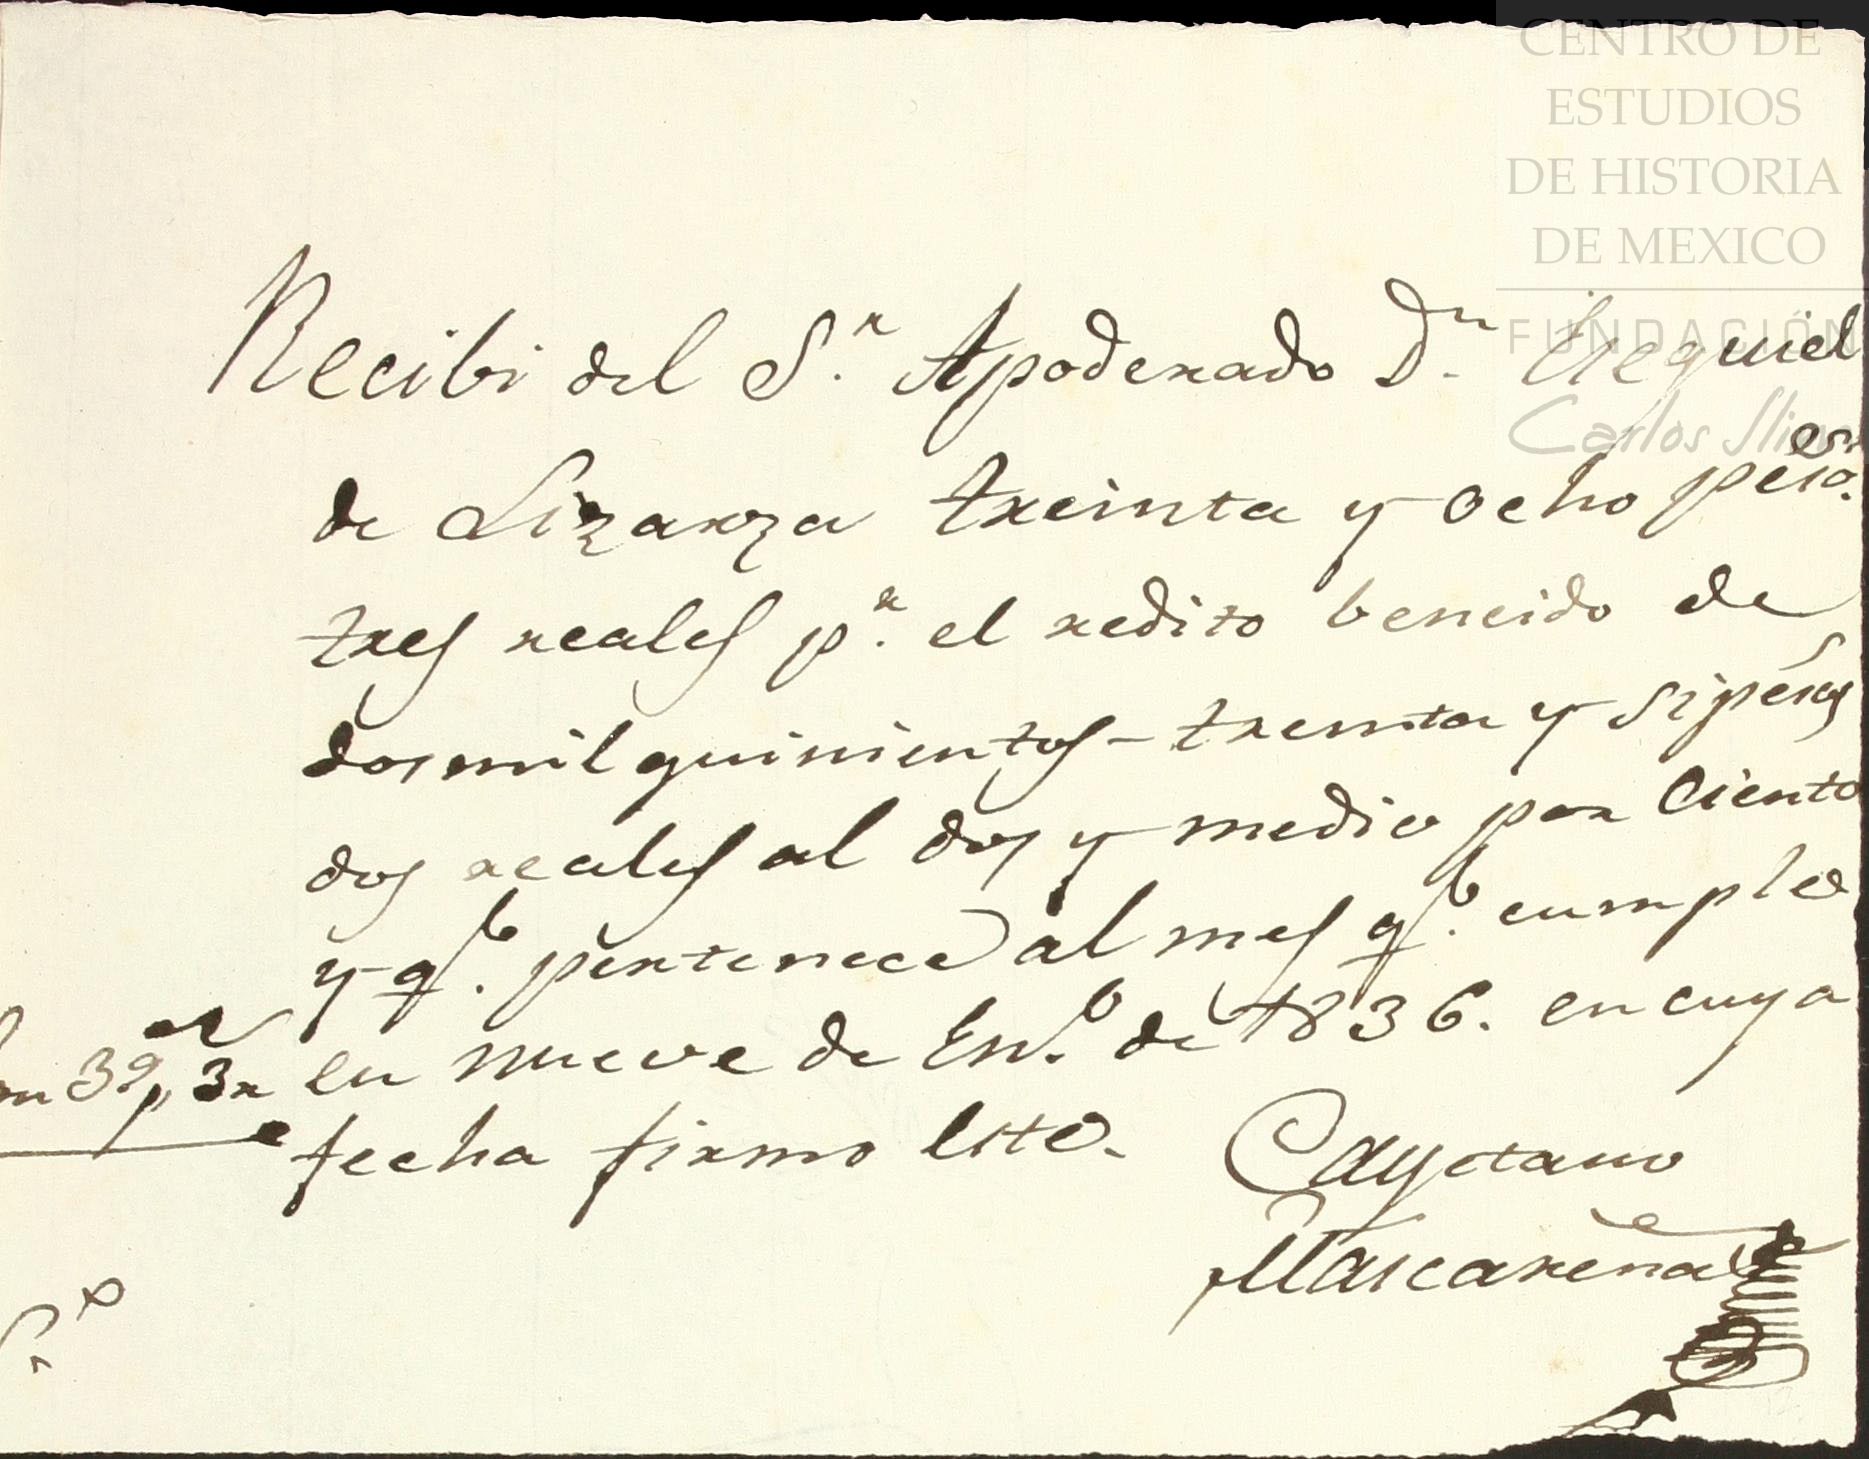 CENTRO DE
ESTUDIOS
DE HISTORIA
DE MEXICO
FUNDACIÓN
Carlos Slim
Recibi del S.r Apoderado D.n Esequiel
de Lizarza treinta y ocho pesos
tres reales p.r el redito bencido de
dosmil quinientos treinta y si pesos
dos reales al dos y medio por Ciento
y q.e pertenece al mes q.e cumple
en nueve de En.o de 1836. en cuya
fecha firmo este.
Son 39p, 3r
Cayetano
Mascareña